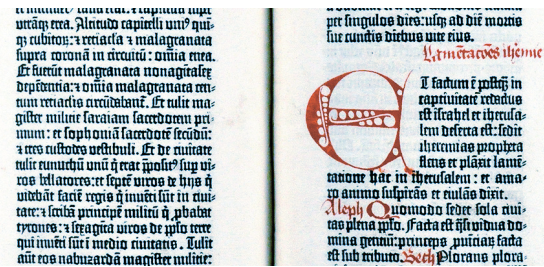 utrāq; erea. Altitudo capitelli uniꝰ quī-
q; cubitoꝝ: ⁊ retiacła ⁊ malagranata
supra coronā in circuitu: omnia erea.
Et fuerūt malagranata nonagītasex
depēdentia: ⁊ omnia malagranata cen-
tum retiaclis circūdabant̄. Et tulit ma-
gister militie saraiam sacerdotem pri-
mum: et sophoniā sacerdotē secūdū:
⁊ tres custodes vestibuli. Et de ciuitate
tulit eunuchū unū q̇ erat p̄positꝰ sup̄ vi-
ros bellatores: et septē viros de hijs q̇
videbāt faciē regis q̇ inuēti sūt in ciui-
tate: ⁊ scribā principē militū q̇ ꝓbabat
tyrones: ⁊ sexagīta viros de pp̄lo terre
qui inuēti sūt ī medio ciuitatis. Tulit
aūt eos nabuzardā magister militie:
per singulos dies: usq; ad diē mortis
sue cunctis diebus vite eius.
Lamētacōes iheremie
Et factum ē postq̄ī in
captiuitatē redactus
est israhel et iherusa-
lem deserta est: sedit
iheremias propheta
flens et plāxit lamē-
tatione hac in iherusalem: et ama-
ro animo suspirās et eiulās dixit.
Aleph Quomodo sedet sola ciui-
tas plena pp̄lo. Facta est q̄si vidua do-
mina gentiū: princeps ꝓuinciaꝝ facta
est sub tributo. Beth Plorans plora-